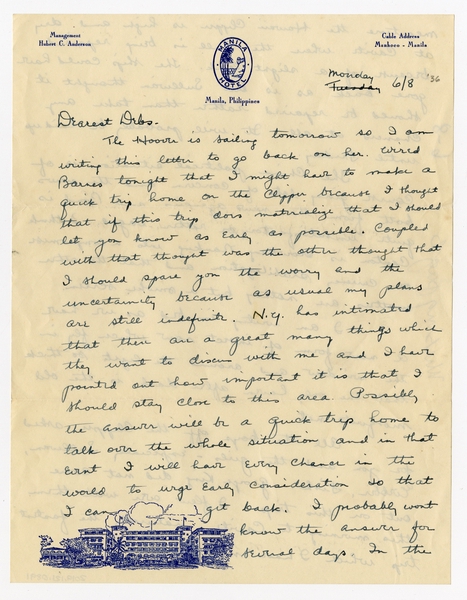 Management
Hubert C. Anderson
MANILA
HOTEL
Manila, Philippines
Cable Address
Manhoco - Manila
Monday
Tuesday 6/8 '36
Dearest Debs-
The Hoover is sailing tomorrow so I am
writing this letter to go back on her. Wired
Barnes tonight that I might have to make a
quick trip home on the Clipper because I thought
that if this trip does matrialize that I should
let you know as early as possible. Coupled
with that thought was the other thought that
I should spare you the worry and the
uncertainity because as usual my plans
are still indefinite. N.Y. has intimated
that there are a great many things which
they want to discuss with me and I have
pointed out how important it is that I
should stay close to this area. Possibly
the answer will be a quick trip home to
talk over the whole situation and in that
event I will have every chance in the
world to urge early consideration so that
I can get back. I probably wont
know the answer for
several days. In the